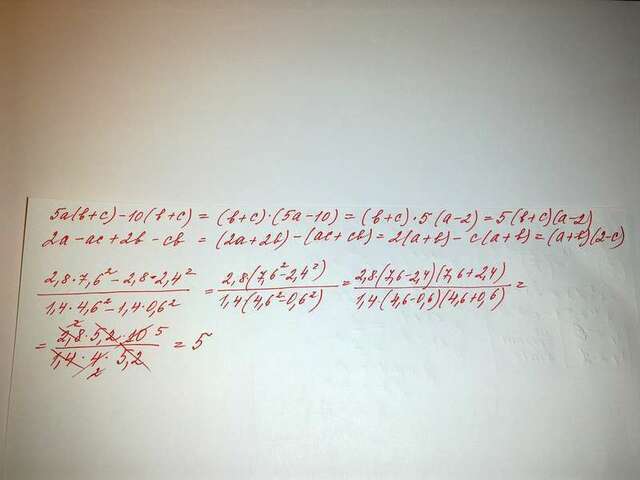 5a(b+c)-10(b+c) = (b+c)·(5a-10) = (b+c)·5(a-2) = 5(b+c)(a-2)
2a-ac+2b-cb = (2a+2b)-(ac+cb) = 2(a+b)-c(a+b) = (a+b)(2-c)
(2,8·7,6²-2,8·2,4²)/(1,4·4,6²-1,4·0,6²) = (2,8(7,6²-2,4²))/(1,4(4,6²-0,6²)) = (2,8(7,6-2,4)(7,6+2,4))/(1,4(4,6-0,6)(4,6+0,6)) =
= (2,8 2·5,2·10 5)/(1,4·4 2·5,2) = 5